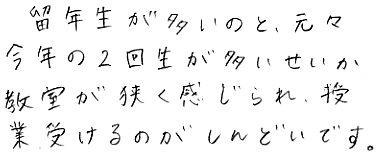 留年生が多いのと、元々
今年の2回生が多いせいか
教室が狭く感じられ、授
業受けるのがしんどいです。